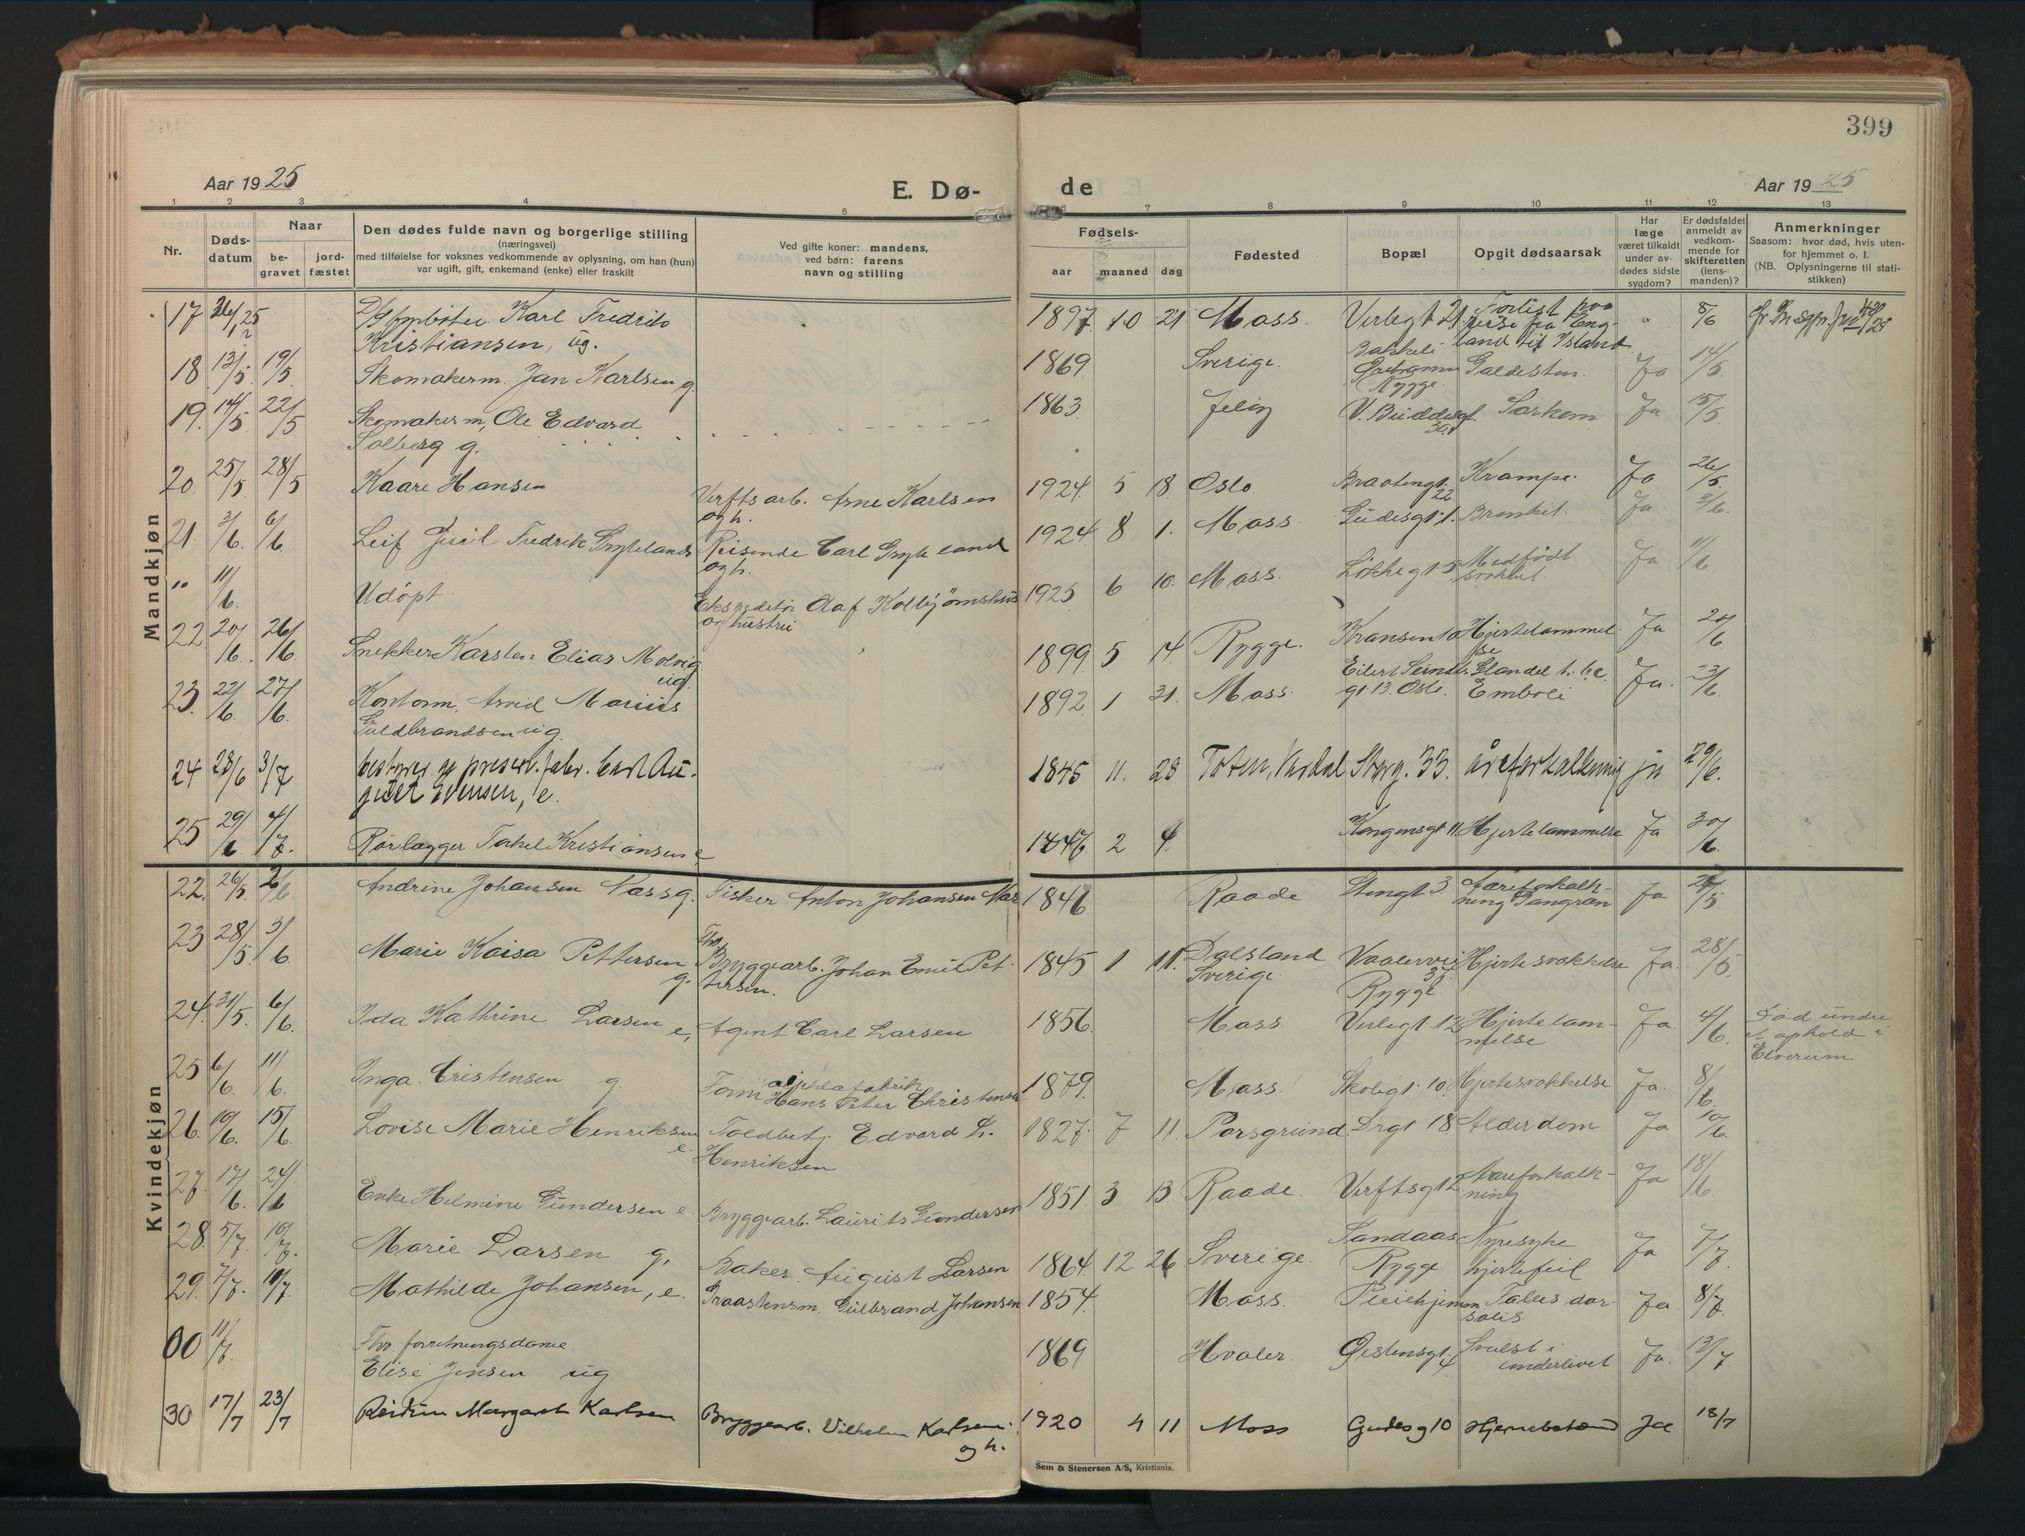 399
Aar 1925
E. Dø-
de
Aar 1925
1 2 3 4 5 6 7 8 9 10 11 12 13
Nr.
Døds-
datum
Naar
be-
gravet
jord-
fæstet
Den dødes fulde navn og borgerlige stilling
(næringsvei)
med tilføielse for voksnes vedkommende av oplysning, om han (hun)
var ugift, gift, enkemand (enke) eller fraskilt
Ved gifte koner: mandens,
ved barn: farens
navn og stilling
Fødsels-
aar maaned dag
Fødested
Bopæl
Opgit dødsaarsak
Har
læge
været tilkaldt
under av-
dødes sidste
sygdom?
Er dødsfaldet
anmeldt av
vedkom-
mende for
skifteretten
(lens-
manden)?
Anmerkninger
Saasom: hvor død, hvis uten-
for hjemmet o. l.
(NB. Oplysningerne til stati-
stikken)
Mandkjøn
17 fyrbøter Karl Fredrik 1897 10 21 Moss. Verlegt 21 Forlist paa 8/6
Kristiansen, ug. reise fra Eng-
land til Island
18 13/5 19/5 Skomakerm. Jan Karlsen g. 1869 Sverige. Rygge. Galdesten. Ja 14/5
19. 14/5 22/5 Skomakerm, Ole Edvard 1863 Jeløy V. Buddesgt. 30. Sarkom Ja 15/5
Solberg g.
20 25/5 28/5 Kaare Hansen Verftsarb. Arne Karlsen 1924 5 18. Oslo Braatengt. 22 Krampe. Ja 26/5
og h.
21. 3/6. 6/6 Leif Juul Fredrik Gryteland Reisende Carl Gryteland 1924 8 1. Moss Gudesgt. 1. Bronkit. Ja 3/6.
og h.
" 11/6. Udöpt Ekspeditør Olaf Kolbjørnshus 1925 6 10. Moss. Løkkegt 5 Medfødt Ja 11/6
og hustru svakhet.
22 20/6. 26/6 Snekker Karsten Elias Molvig 1899 5 14. Rygge. Kransen 10 Hjertelammel- Ja 20/6
ug. se
23. 22/6. 27/6. Kontorm. Arvid Marius 1892 1 31. Moss. Eilert Sundts Ja. 23/6.
Guldbrandsen ug. gt 13. Oslo. Emboli
24 28/6 3/7 bestyrer av preserv. fabr. Carl Au- 1845 11. 28 Toten, Vardal Storg. 33. åreforkalkning ja 29/6.
gust Evensen, e.
25 29/6 4/7. Rørlægger Torkel Kristiansen e 1846 2 4. Kongensgt 11 Hjertelammelse Ja 30/6
Kvindekjøn
22. 26/5 2/6 Andrine Johansen Næss g. Fisker Anton Johansen Næs 1846 Raade Stengt 3. Aareforkalk- Ja 27/5
ning Gangræn
23 28/5. 3/6. Marie Kaisa Pettersen Bryggearb. Johan Emil Pet- 1845 1 11. Dalsland Vaalervei Hjertesvækkelse Ja. 28/5
g. tersen. Sverige 37. Rygge
24. 31/5. 6/6. Ida Kathrine Larsen e, Agent Carl Larsen 1856. Moss Verlegt 12 Hjertelam- Ja. 4/6. Død under
melse et ophold i
Elverum.
25 6/6. 11/6. Inga Cristensen g Form Hans Peter Christensen 1879. Moss. Skolegt. 10. Hjertesvækkelse Ja. 8/6.
26. 10/6. 15/6. Lovise Marie Henriksen Toldbetj Edvard L. 1827. 7 11. Porsgrund. Drgt 18 Alderdom Ja 10/6.
e. Henriksen
27. 17/6. 24/6 Enke Helmine Gundersen e. Bryggearb. Laurits Gundersen 1851. 3 13 Raade. Verftsgt 12 Aareforkalk- Ja 18/6
ning
28. 5/7. 10/7. Marie Larsen g, Baker. August Larsen 1864. 12 26 Sverige. Sandaas Nyresyke Ja 7/7.
Rygge hjertefeil
29. 7/7. 10/7. Mathilde Johansen, e. Graastensm. Gulbrand Johansen 1854. Moss. Pleiehjemm. Tabes dor Ja. 8/7.
salis
00 11/7. Fhv. forretningsdame 1869 Hvaler. Østensgt. 4 Svulst i Ja. 13/7.
Elise Jensen ug underlivet
30 17/7 23/7 Reidun Margaret Karlsen Bryggearb. Vilhelm Karlsen. 1920 4 11 Moss Gudesg 10 Ja 18/7
og h.
Sem & Stenersen A/S, Kristiania.